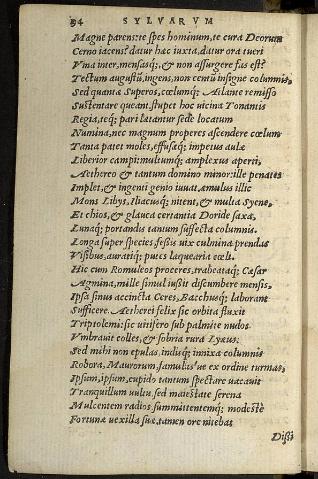 94 SYLVARVM
Magne parens: te spes hominum, te cura Deorum
Cerno iacens? datur hæc iuxta, datur ora tueri
Vina inter, mensasq;, & non assurgere fas est?
Tectum augustũ, ingens, non centũ insigne columnis,
Sed quantæ Superos, cœlumq; Atlante remisso
Sustentare queant. stupet hoc uicina Tonantis
Regia, teq; pari lætantur sede locatum
Numina, nec magnum properes ascendere cœlum
Tanta patet moles, effusæq; impetus aulæ
Liberior campi: multumq; amplexus aperti,
Aethereo & tantum domino minor: ille penates
Implet, & ingenti genio iuuat. æmulus illic
Mons Libys, Iliacusq; nitent, & multa Syene,
Et chios, & glauca certantia Doride saxa,
Lunaq; portandis tantum suffecta columnis.
Longa super species, fessis uix culmina prendas
Visibus, auratiq; putes laquearia cœli.
Hic cum Romuleos proceres, trabeataq; Cæsar
Agmina, mille simul iussit discumbere mensis,
Ipsa sinus accincta Ceres, Bacchusq; laborant
Sufficere. Aetherei felix sic orbita fluxit
Triptolemi: sic uitifero sub palmite nudos
Vmbrauit colles, & sobria rura Lyæus.
Sed mihi non epulas, indisq; innixa columnis
Robora, Maurorum, famulas ue ex ordine turmas,
Ipsum, ipsum, cupido tantum spectare uacauit
Tranquillum uultu, sed maiestate serena
Mulcentem radios, summittentemq; modestè
Fortunæ uexilla suæ, tamen ore nitebat
Dissi